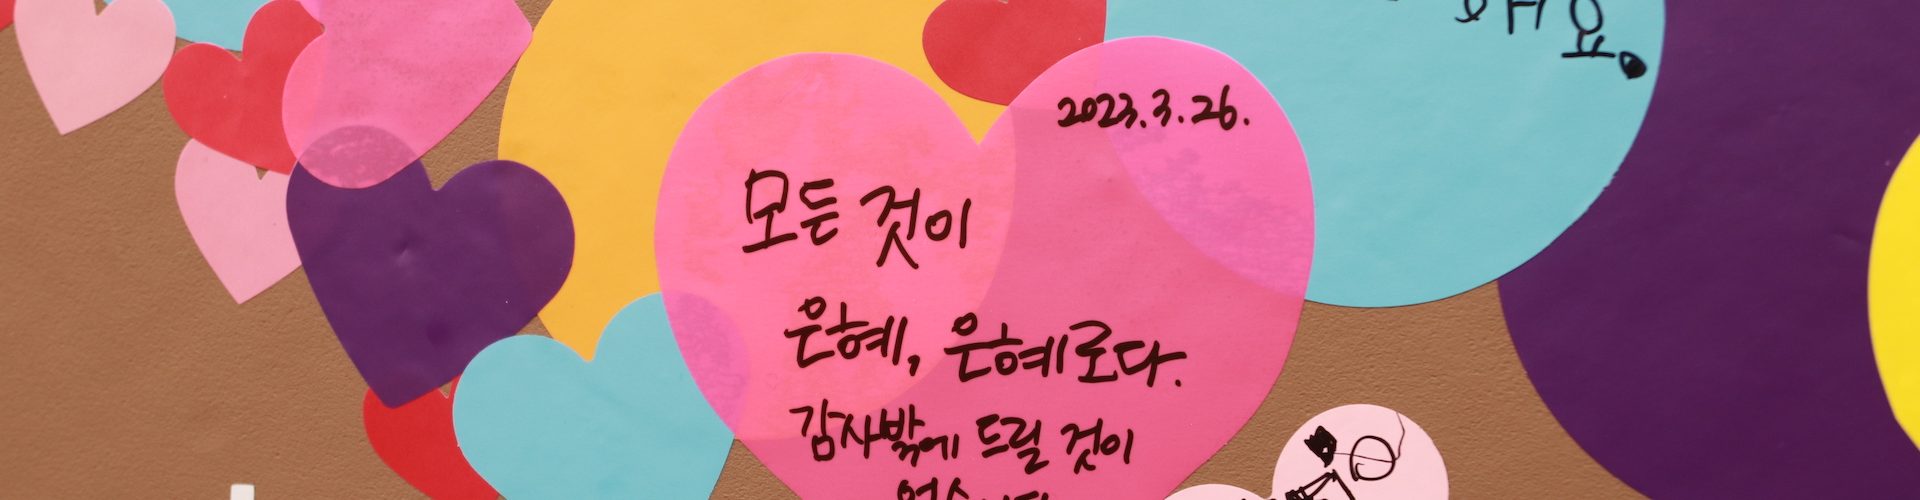 해요.
2023.3.26.
모든 것이
은혜, 은혜로다.
감사밖에 드릴 것이
없습니다